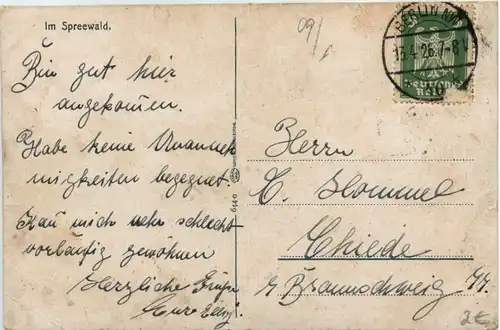 Im Spreewald.
09/
Bin gut hier
angekommen.
Habe keine Unanneh
migkeiten begegnet.
Kan mich sehr schlecht
vorläufig gewöhnen
Herzliche Grüße
Eure
BERLIN
15.4.26.7-8V.
Deutsches
Reich
Herrn
C. Hommel
Thiede
Braunschweig
6440
2€